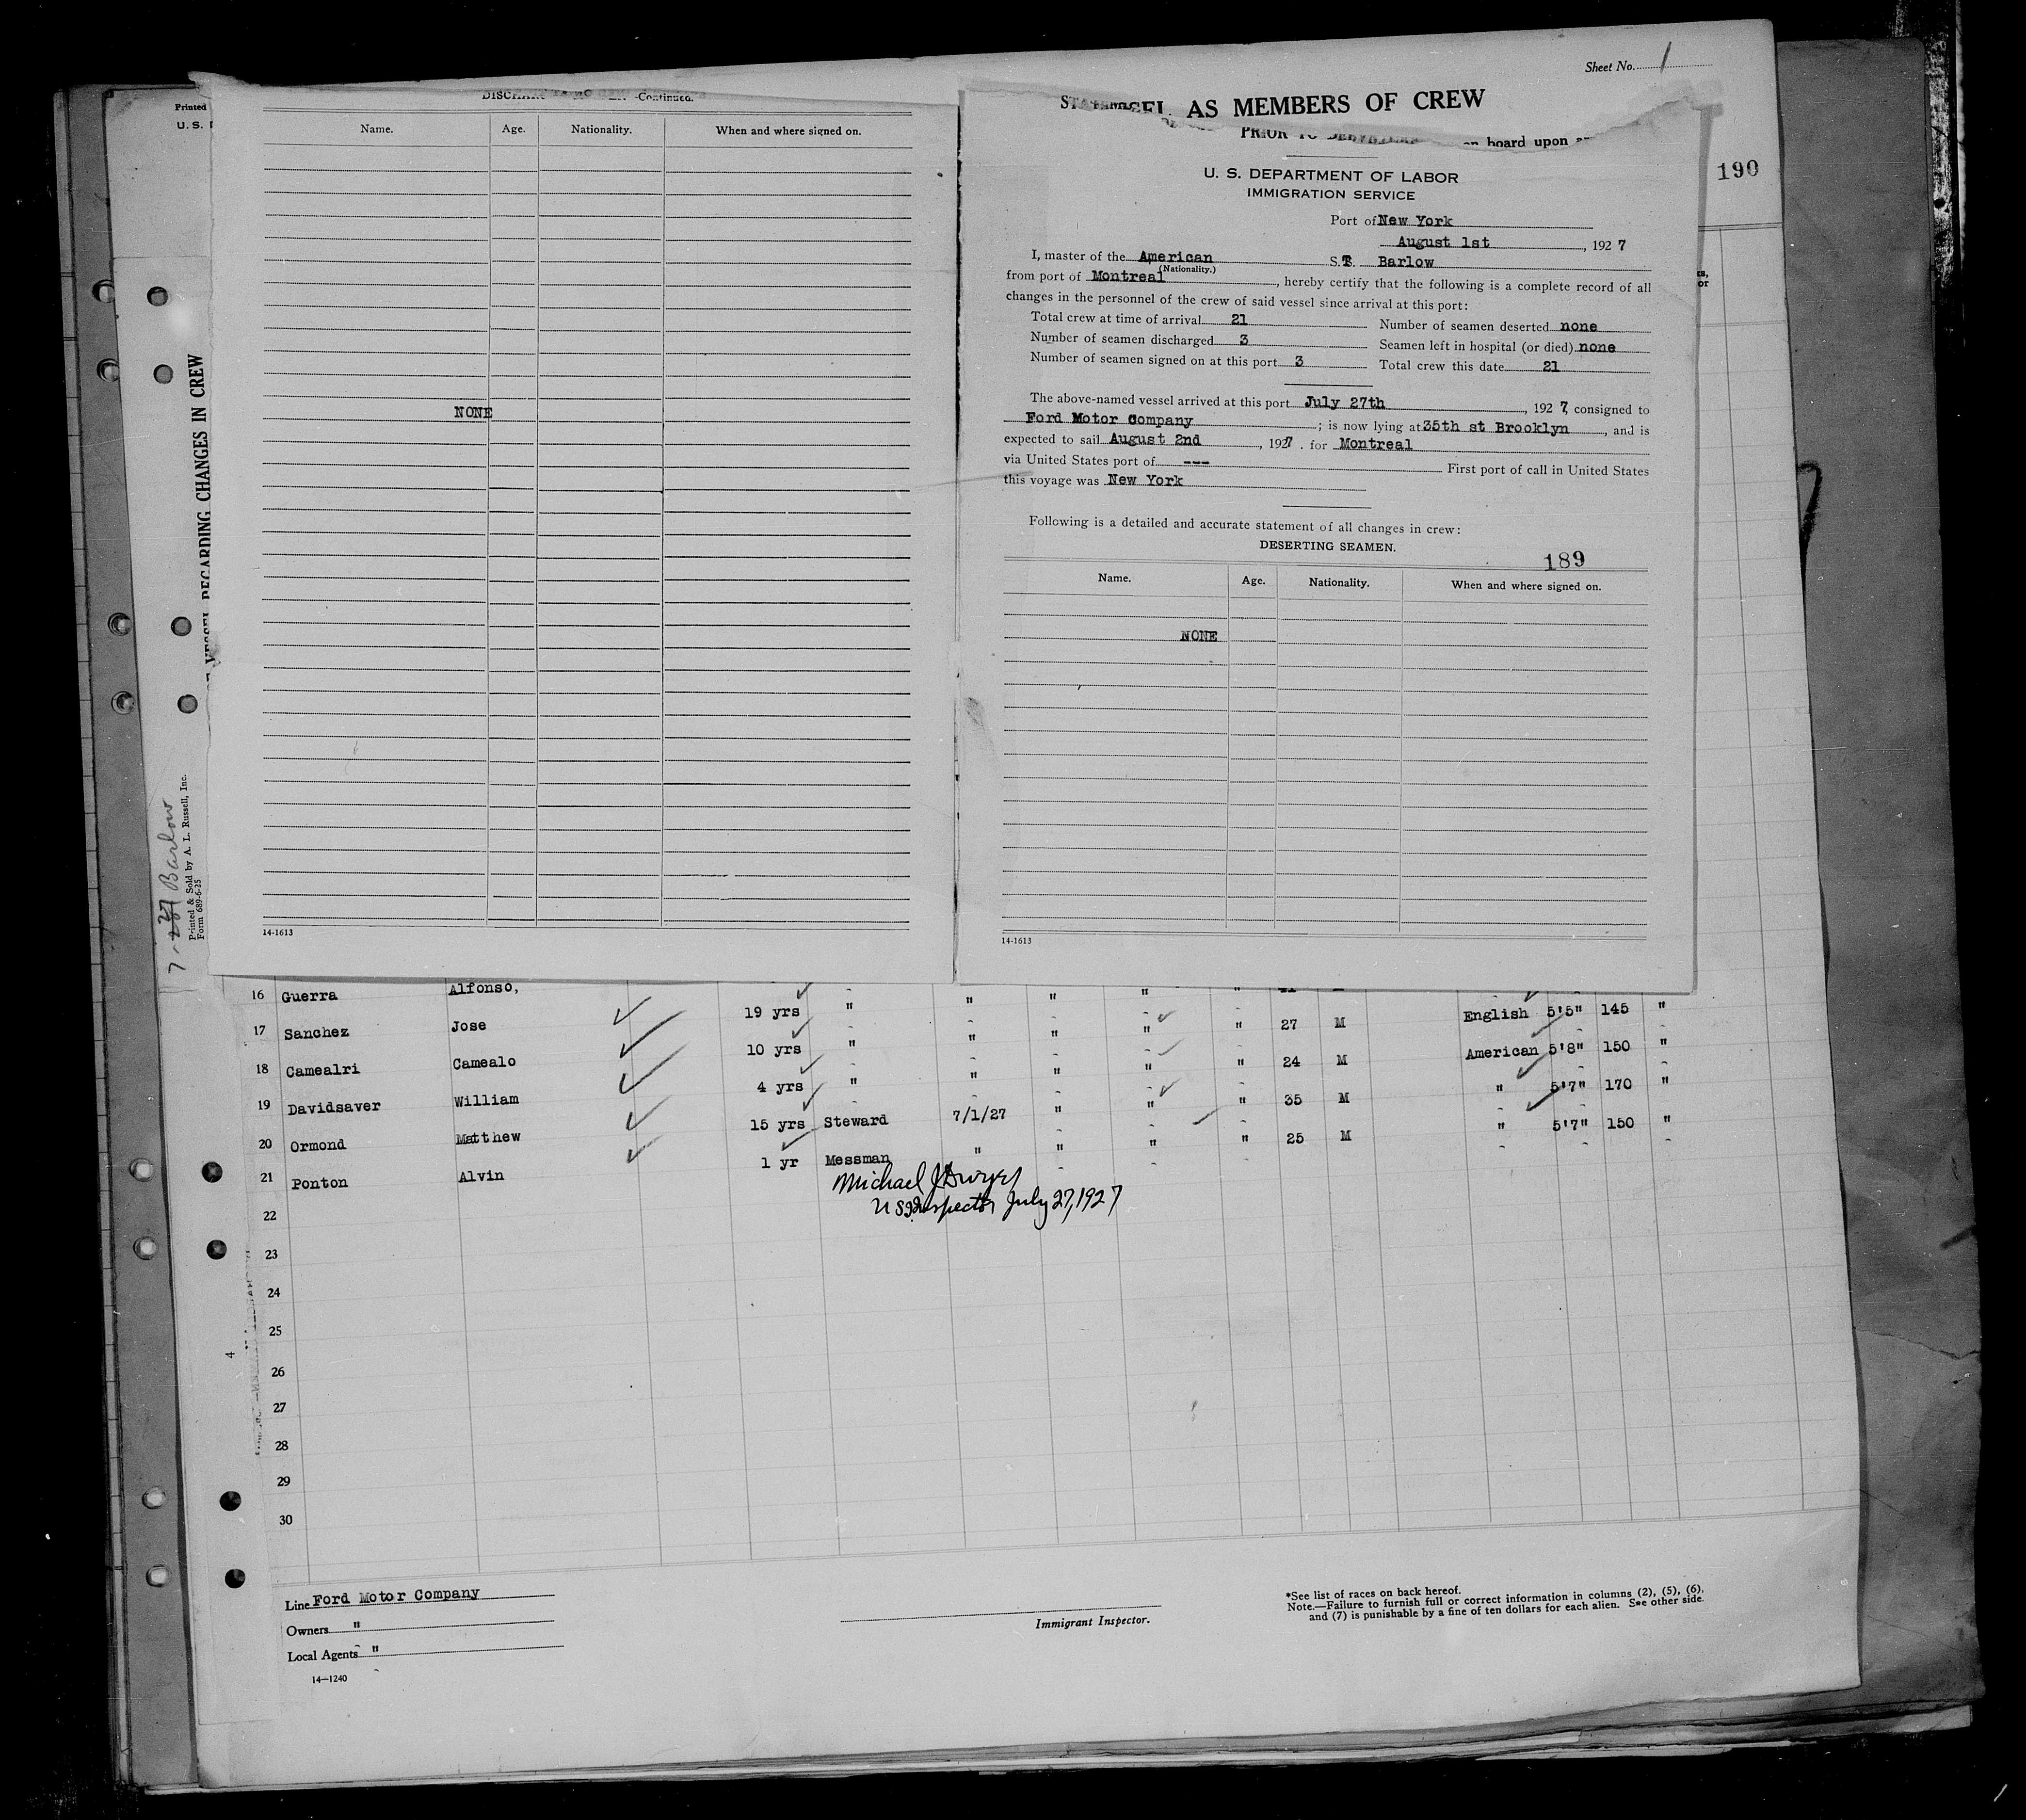 Sheet No. 1
AS MEMBERS OF CREW
PRIOR TO
on board upon
190
Printed
U. S.
DISCHAR -Continued.
Name. Age. Nationality. When and where signed on.
NONE
14-1613
VESSEL REGARDING CHANGES IN CREW
Barlow
Printed & Sold by A. L. Russell, Inc.
Form 689-6-25
U. S. DEPARTMENT OF LABOR
IMMIGRATION SERVICE
Port of New York
August 1st, 1927
I, master of the American S.S. Barlow
(Nationality.)
from port of Montreal, hereby certify that the following is a complete record of all
changes in the personnel of the crew of said vessel since arrival at this port:
Total crew at time of arrival 21 Number of seamen deserted none
Number of seamen discharged 3 Seamen left in hospital (or died) none
Number of seamen signed on at this port 3 Total crew this date 21
The above-named vessel arrived at this port July 27th, 1927, consigned to
Ford Motor Company; is now lying at 35th st Brooklyn, and is
expected to sail August 2nd, 1927. for Montreal
via United States port of --- First port of call in United States
this voyage was New York
Following is a detailed and accurate statement of all changes in crew:
DESERTING SEAMEN.
189
Name. Age. Nationality. When and where signed on.
NONE
14-1613
16 Guerra Alfonso, " " " " "
17 Sanchez Jose 19 yrs " " " " " 27 M English 5'5" 145 "
18 Camealri Camealo 10 yrs " " " " " 24 M American 5'8" 150 "
19 Davidsaver William 4 yrs " " " " " 35 M " 5'7" 170 "
20 Ormond Matthew 15 yrs Steward 7/1/27 " " " 25 M " 5'7" 150 "
21 Ponton Alvin 1 yr Messman " " "
Michael J Dwyer
US Inspector July 27, 1927
22
23
24
25
26
27
28
29
30
4
Line Ford Motor Company
Owners "
Local Agents "
14—1240
Immigrant Inspector.
*See list of races on back hereof.
Note.—Failure to furnish full or correct information in columns (2), (5), (6),
and (7) is punishable by a fine of ten dollars for each alien. See other side.